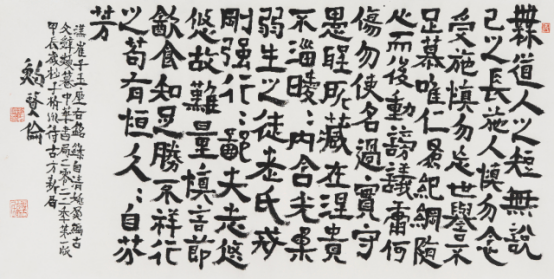 無道人之短無說
己之長施人慎勿念
受施慎勿忘世譽不
足慕唯仁為紀綱隨
心而後動謗議庸何
傷勿使名過實守
愚聖所臧在涅貴
不淄曖〻內含光柔
弱生之徒老氏戒
剛強行〻鄙夫志悠
悠故難量慎言節
飲食知足勝不祥行
之苟有恒久〻自芬
芳
漢崔子玉座右銘錄自清姚鼐編古
文辭類纂中華書局二零二二年第一版
甲辰歲秋